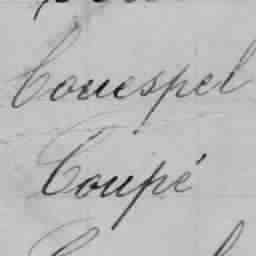 Couespel
Coupé